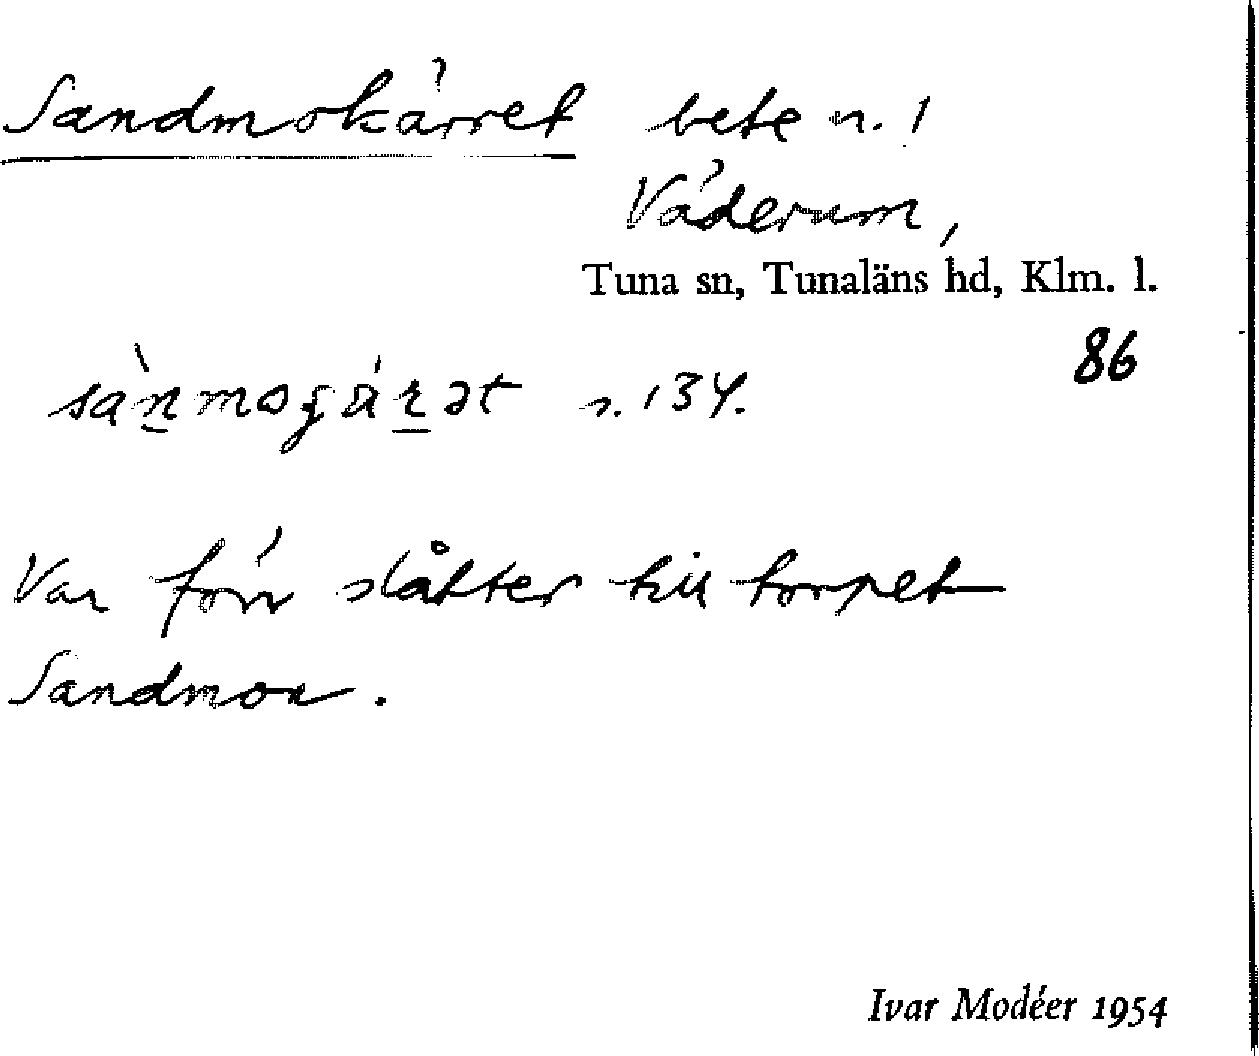 Sandmokärret bete n. 1
Väderum,
Tuna sn, Tunaläns hd, Klm. l.
86
n. 134.
Var förr slåtter till torpet
Sandmon.
Ivar Modéer 1954